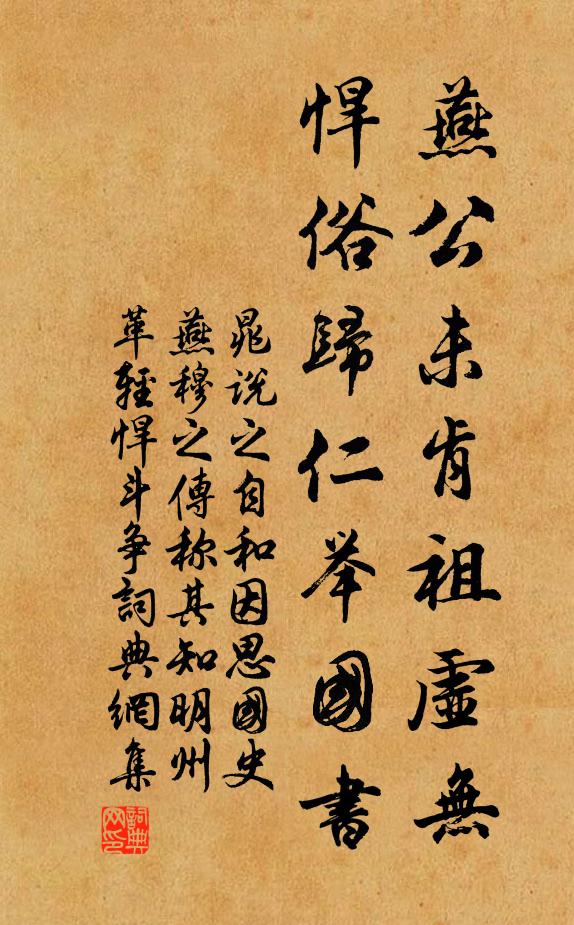 燕公未肯祖虛無
悍俗歸仁举國書
晁說之自和因思國史
燕穆之傳称其知明州
革輕悍斗争詞典網集
詞典网印